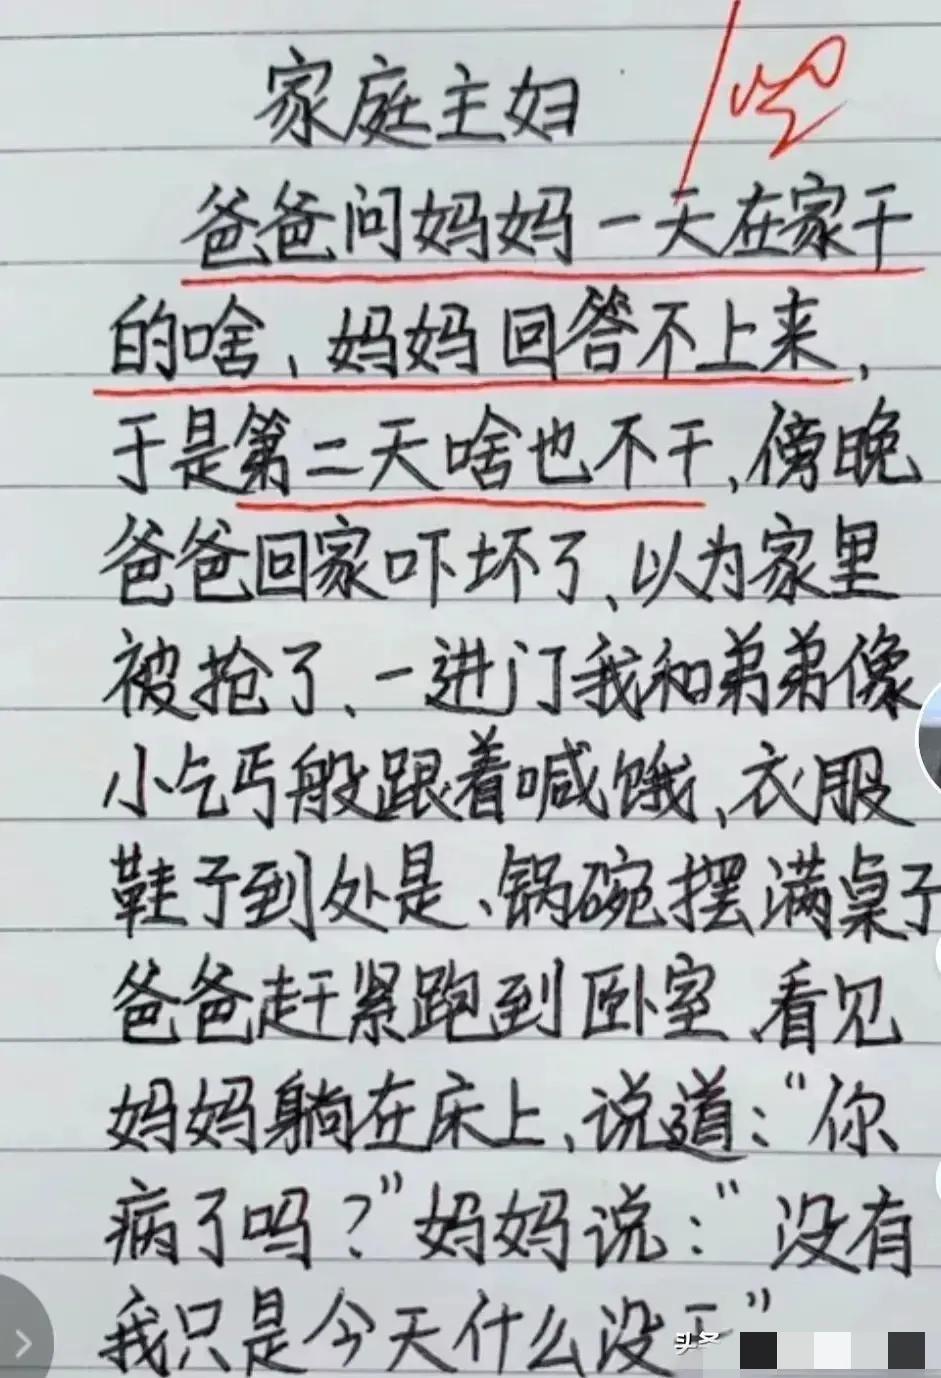 家庭主妇
爸爸问妈妈一天在家干
的啥、妈妈回答不上来,
于是第二天啥也不干、傍晚
爸爸回家吓坏了、以为家里
被抢了、一进门我和弟弟像
小乞丐般跟着喊饿、衣服
鞋子到处是、锅碗摆满桌子
爸爸赶紧跑到卧室、看见
妈妈躺在床上、说道:“你
病了吗?”妈妈说:“没有
我只是今天什么没干”
头条